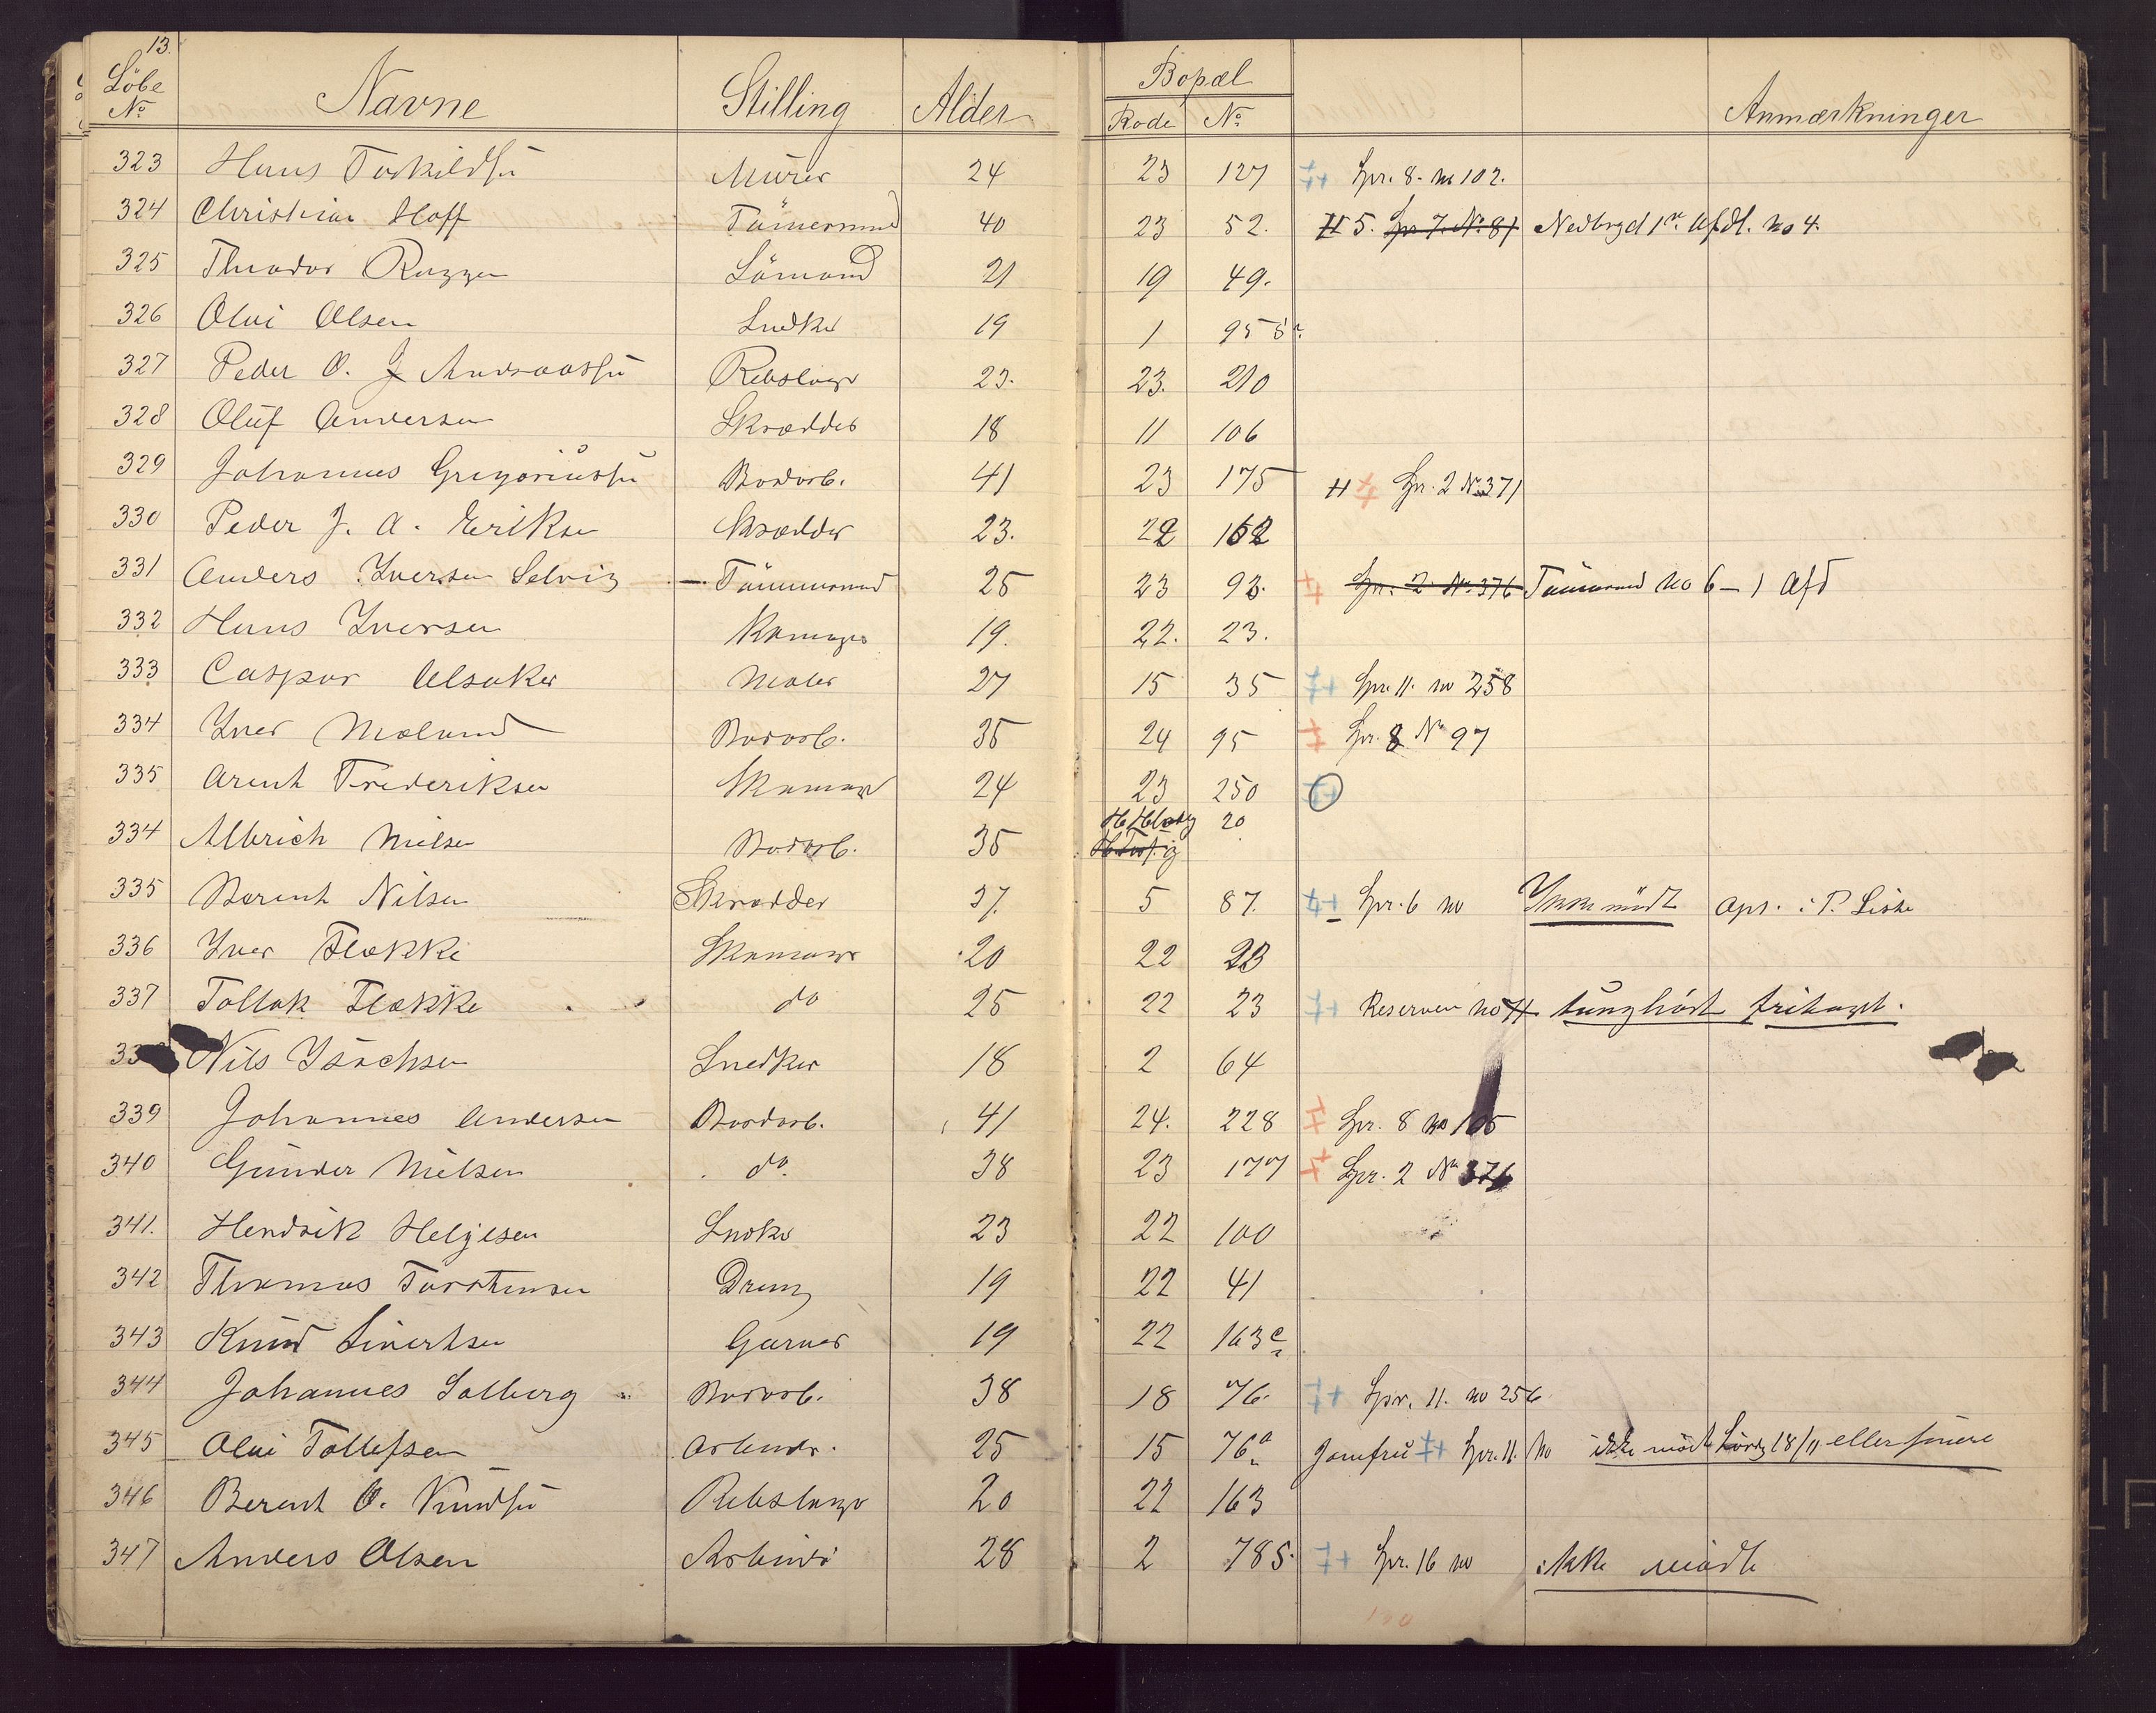 13.
Löbe No Navne Stilling Alder Bopæl Rode No Anmærkninger
323 Hans Torkilds̅n Mürer 24 23 127 Spr. 8. no 102.
324 Christian Hoff Tömermnd 40 23 52. H 5. Spr 7. No 81 Nedbryd 1ste Afdl. no 4.
325 Theodor 21 19 49.
326 Olai Olsen Snedker 19 1 95
327 Peder O. J Andreass̅n Rebslager 23. 23. 210
328 Oluf Andersen Skrædder 18 11 106
329 Johannes Gregoriuss̅n Bordarb. 41 23 175 H Spr. 2 No 371
330 Peder J. A. Eriksen Skrædder 23. 22 162
331 Anders Iversen Selvig Tömmermnd 25 23 93. Spr. 2 No 376 Tömermnd no 6 – 1 Afd
332 Hans Iversen Skomager 19. 22. 23.
333 Caspar Alsaker Maler 27 15 35 Spr. 11. no 258
334 Iver Mæland Bordarb. 35 24 95 Spr. 8 No 97
335 Arent Frederiksen Skomager 24 23 250
334 Albrich Nielsen Bordarb. 35 20
335 Berent Nilsen Skrædder 37. 5 87. Spr. 6 no Ikke mödt Aps. i P. Liste
336 Iver Flokke Skomager 20 22 23
337 Tollak Flokke do 25 22 23 Reserven no tunghört fritaget.
Nils Isachsen Snedker 18 2 64
339 Johannes Andersen Bordarb. 41 24. 228 Spr. 8 no 105
340 Günder Nielsen do. 38 23 177 Spr. 2 No 376
341. Hendrik Helgesen Snedker 23 22 100
342 Thomas Torstensen Dreng 19 22 41
343 Knud Sivertsen Garver 19 22 163 c
344 Johannes Solberg Bordarb. 38 18 76. Spr. 11. no 256
345 Olai Tollefsen Arbeider. 25 15 76 a Jomfru Spr. 11. no ikke mödt Lördg 18/11 eller senere
346 Berent O. Knuds̅n Rebslager 20 22 163
347 Anders Olsen Arbeider 28 2 785. Spr. 16 no ikke mödt